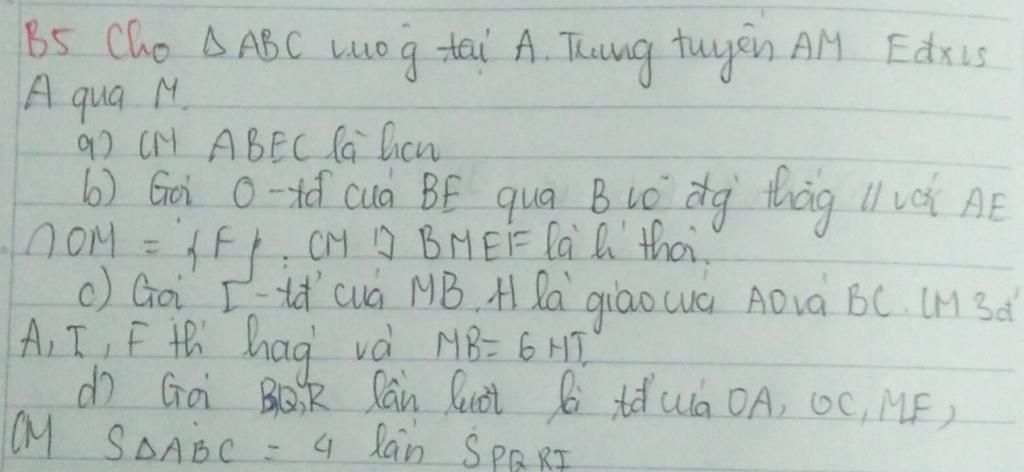 B5 Cho Δ ABC vuog̃ tại A. Trung tuyến AM Edxvs
A qua M.
a) CM ABEC là hcn
b) Gọi O-tđ của BE qua B vẽ đg̀ thẳg // với AE
∩ OM = {F}. CM □ BMEF là h̀ thoi.
c) Gọi I-tđ của MB. H là giao của AO và BC. CM 3đ
A, I, F th̉ hàg và MB = 6 HI
d) Gọi P,Q,R lần lượt là tđ của OA, OC, ME,
CM SΔABC = 4 lần SPQRI